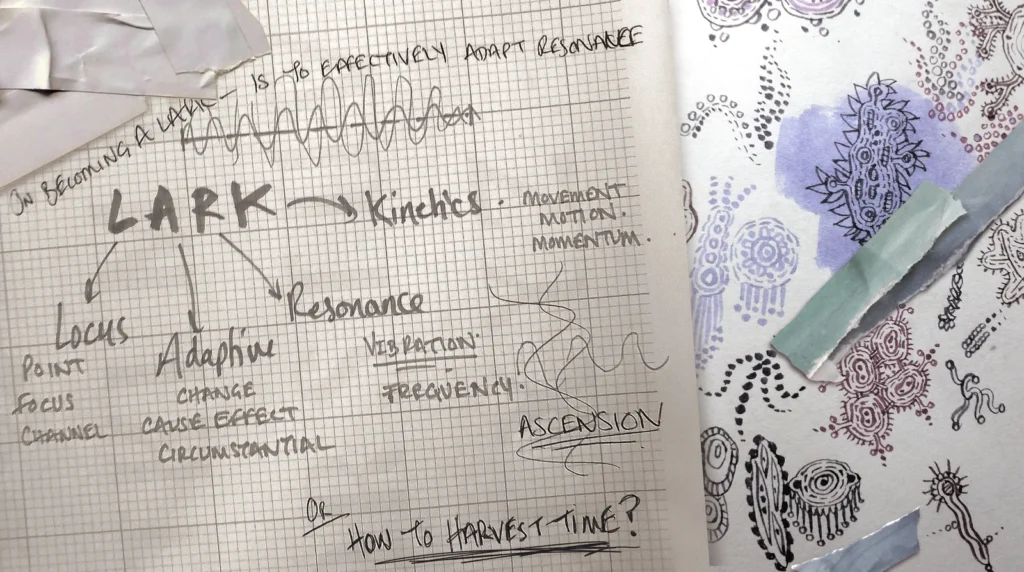 IN BECOMING A LARK - IS TO EFFECTIVELY ADAPT RESONANCE
LARK
Kinetics.
MOVEMENT
MOTION.
MOMENTUM.
Locus
POINT
FOCUS
CHANNEL
Adaptive
CHANGE
CAUSE EFFECT
CIRCUMSTANTIAL
Resonance
VIBRATION
FREQUENCY
ASCENSION
OR
HOW TO HARVEST TIME?